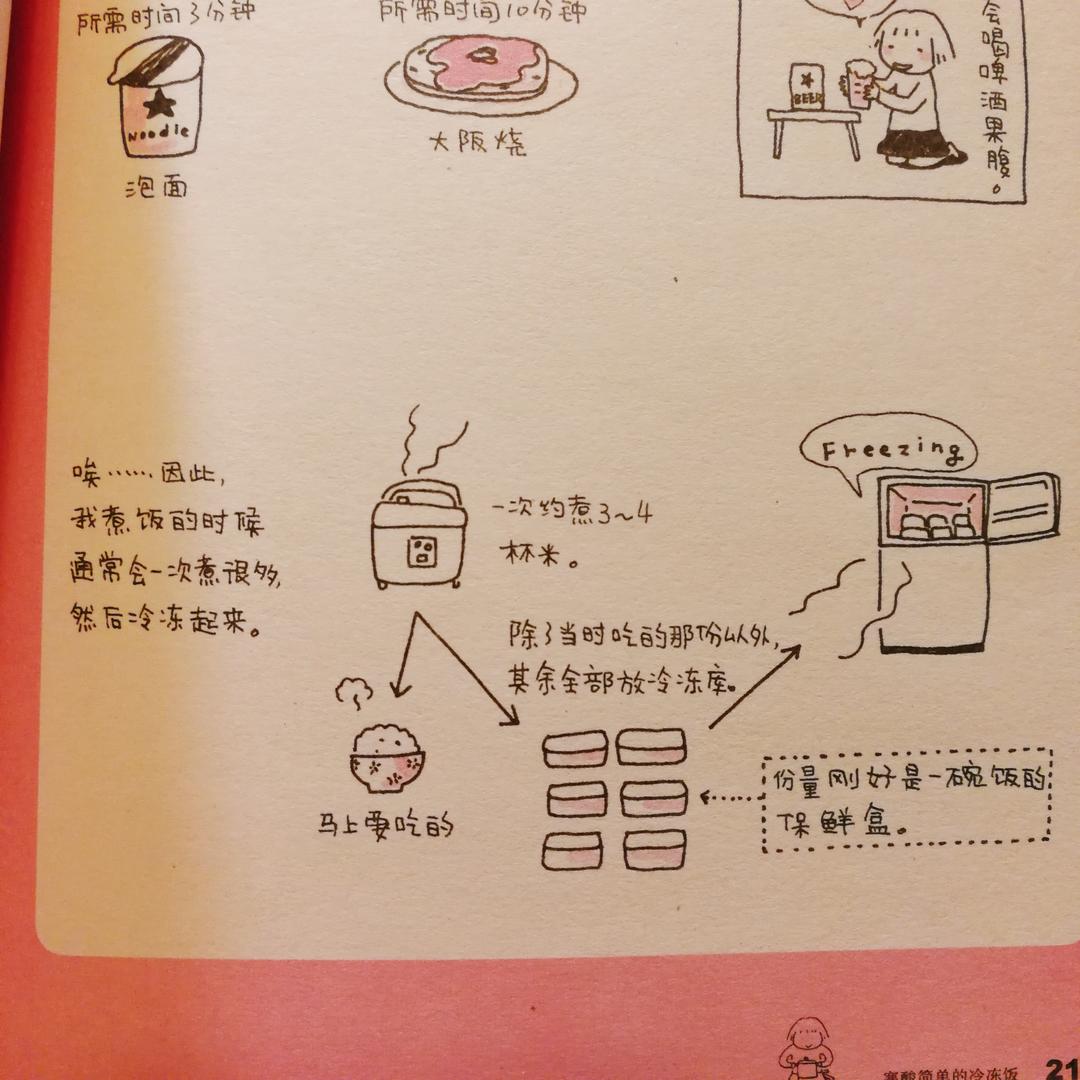 所需时间3分钟
所需时间10分钟
会喝啤酒果腹。
BEER
Noodle
大阪烧
泡面
Freezing
唉……因此,
我煮饭的时候
通常会一次煮很多,
然后冷冻起来。
一次约煮3~4
杯米。
除了当时吃的那份以外,
其余全部放冷冻库。
马上要吃的
份量刚好是一碗饭的
保鲜盒。
寒酸简单的冷冻饭
21